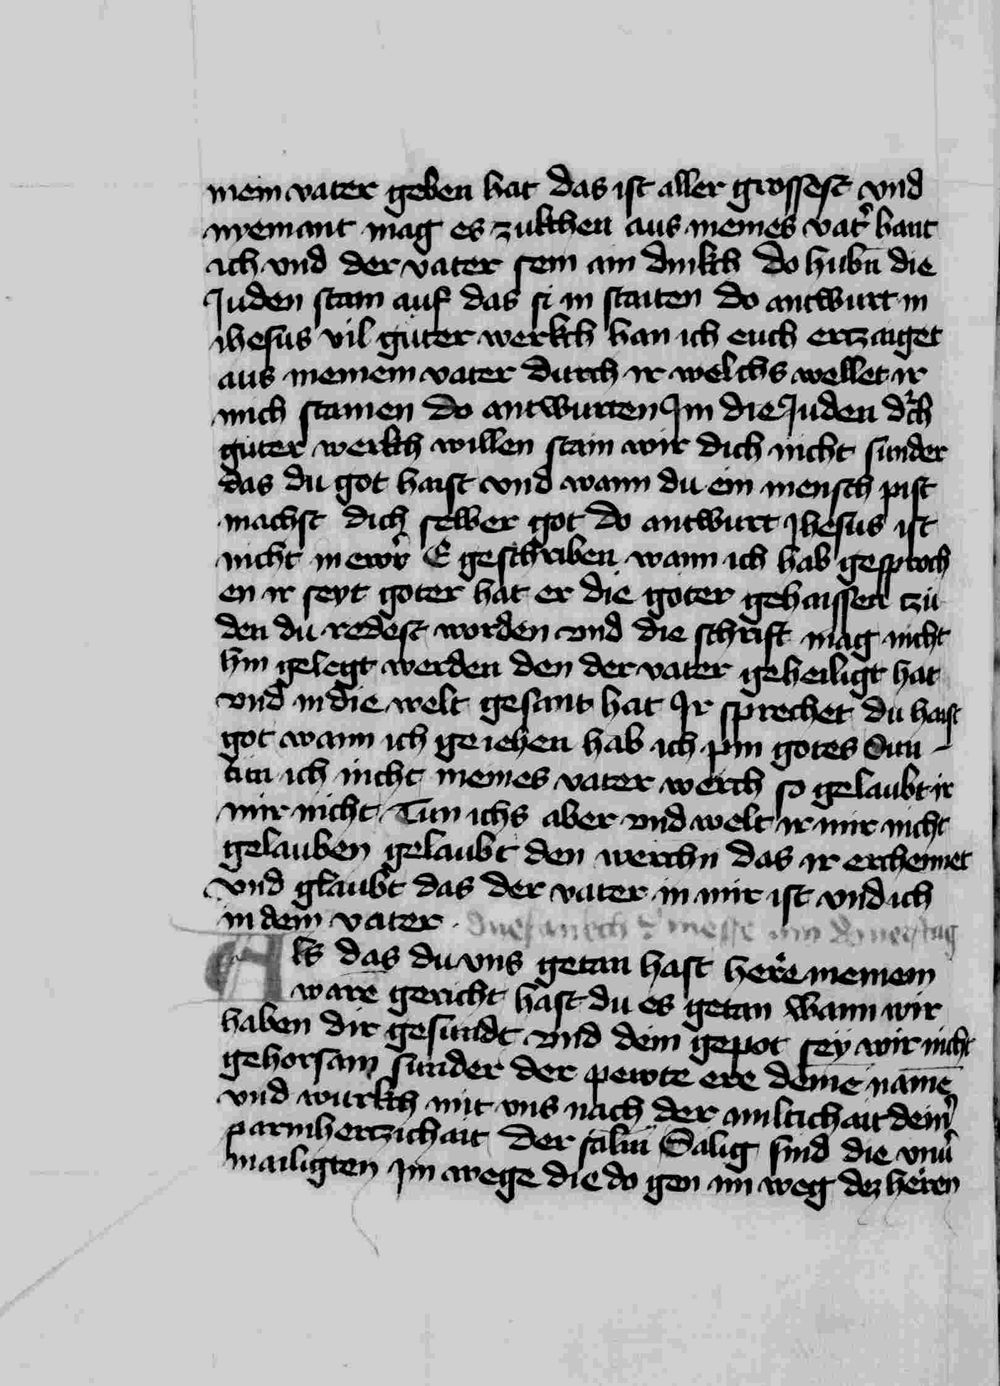 mein vater geben hat das ist aller grossest vnd
nyemant mag es zukchen aus meines vat̾ hant
ich vnd der vater sein ain dinkch do hubn̄ die
Juden stain auf das si in staiten do antwurt in
ihesus vil guter werkch han ich euch ertzaiget
aus meinem vater durch ir welchs wellet ir
mich stainen do antwurten Im die Juden d̾ch
guter werkch willen stain wir dich nicht sunder
das du got haist vnd wann du ein mensch pist
machst dich selber got do antwurt Jhesus ist
nicht in ewr̾ E geschriben wann ich hab gesproch
en ir seyt goter hat er die goter gehaissen tzu
den du redest worden vnd die schrift mag nicht
hin gelegt werden den der vater geheiligt hat
vnd in die welt gesant hat Ir sprechet du haist
got wann ich geiehen hab ich pin gotes Sun
tun ich nicht meines vater werch so gelaubt ir
mir nicht Tun ichs aber vnd welt ir mir nicht
gelauben gelaubt den werchn das ir erchennet
vnd glaubt das der vater in mir ist vnd ich
in dem vater .
Als das du vns getan hast here meinem
ware gericht hast du es getan Wann wir
haben dir gesundt vnd dein gepot sey wir nicht
gehorsam sunder der pewte ere deine̅ name̅
vnd wurkch mit vns nach der miltichait dein̾
parmhertzichait Der salm Salig sind die vnu̾
mailigten Im wege die do gen im weg dez heren